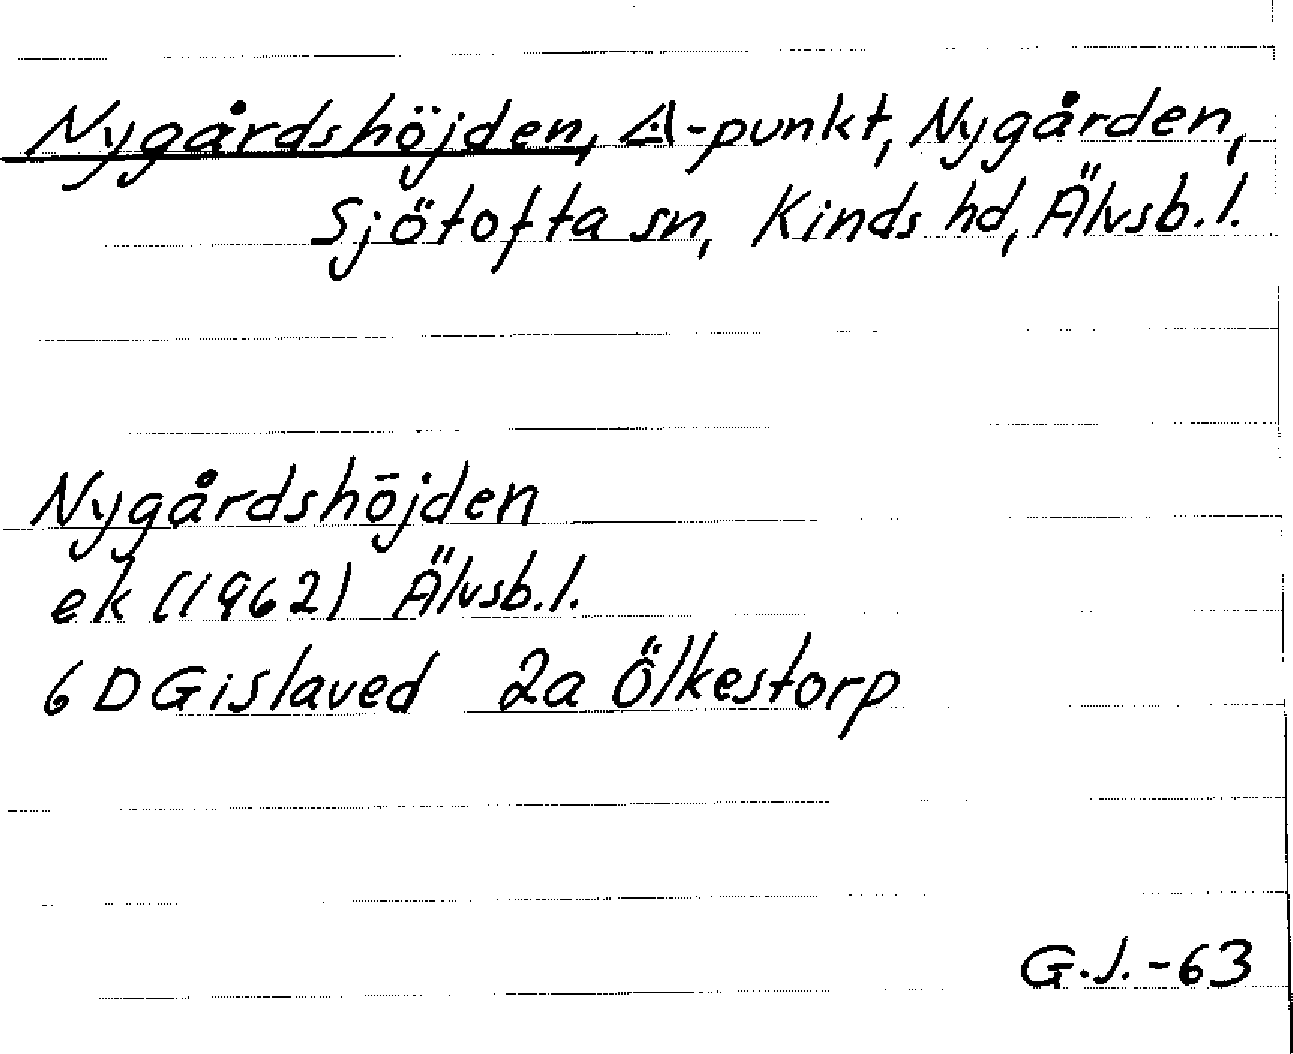 Nygårdshöjden, △-punkt, Nygården,
Sjötofta sn, Kinds hd, Älvsb. l.
Nygårdshöjden
ek (1962) Älvsb. l.
6 D Gislaved 2a Ölkestorp
G.J. -63